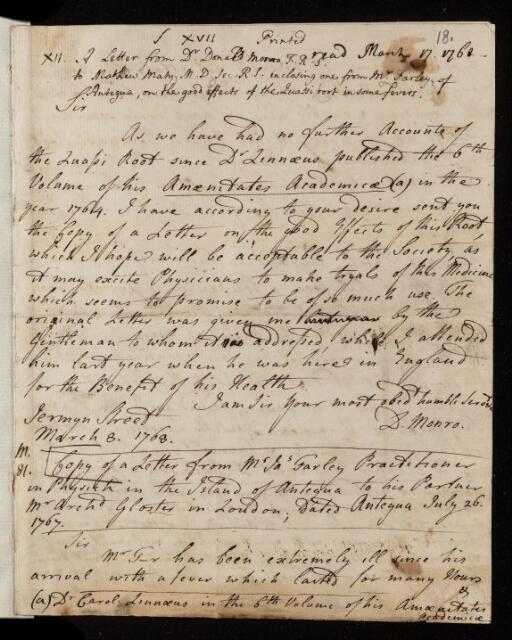 S XVII Printed 18.
XII. A Letter from Dr Donald Monro, F.R.S. read March 17. 1768
to Mathew Maty, M.D. Sec. R.S. inclosing one from Mr Farley, of
Antegua, on the good effects of the Quassi root in some fevers.
Sir
As we have had no further Accounts of
the Quassi Root since Dr Linnæus published the 6th
Volume of his Amænitates Academicæ (a) in the
year 1764. I have according to your desire sent you
the Copy of a Letter on the good Effects of this Root
which I hope will be acceptable to the Society as
it may excite Physicians to make tryals of this Medicine
which seems to promise to be of so much use. The
original Letter was given me by the
Gentleman to whom it was addressed, while I attended
him last year when he was here in England
for the Benefit of his Health.
I am Sir your most obedt humble Servt
Jermyn Street D. Monro.
March 8. 1768.
M.
81. Copy of a Letter from Mr Jas Farley Practitioner
in Physick in the Island of Antegua to his Partner
Mr Archd Gloster in London; Dated Antegua July 26.
1767.
Sir
Mr G-r has been extremely ill since his
arrival with a fever which lasted for many Hours
(a) Dr Carol Linnæus in the 6th Volume of his Amænitates
Academicæ